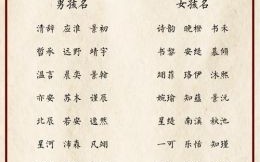 男孩名 女孩名
清辞 应淮 景初 诗韵 晚橙 书禾
哲承 远野 靖宇 书黎 安缇 慕倾
温言 晨奕 景翰 翊菲 珞伊 沐熙
亦安 苏木 谨辰 婉瑜 知蕴 景沅
北辰 若安 逸然 星缇 南溪 秋池
星河 沛森 凡翊 一可 乐怡 知瑾